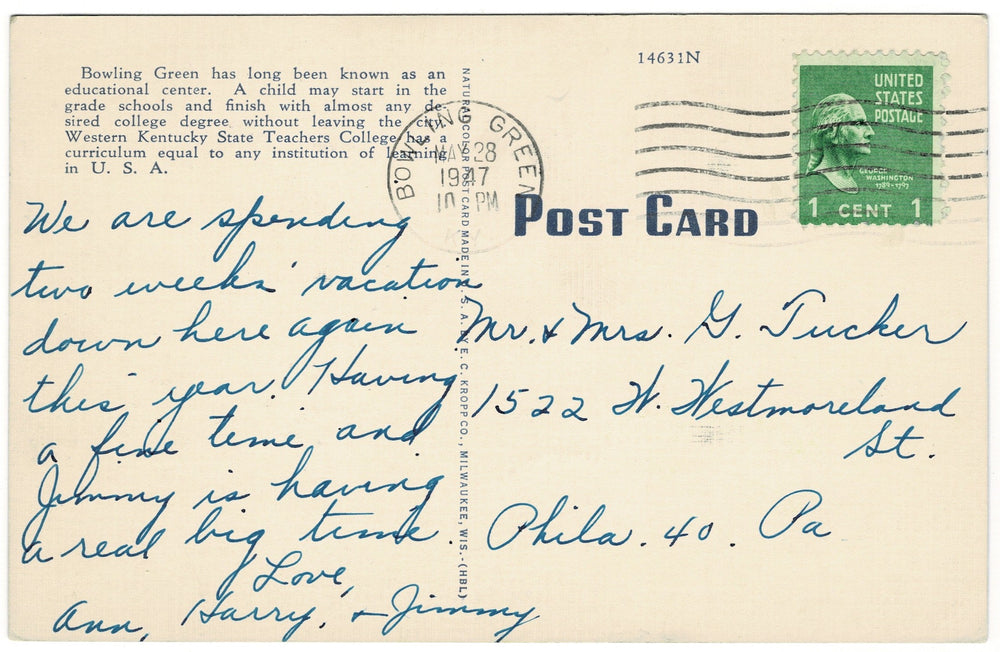 14631N
Bowling Green has long been known as an
educational center. A child may start in the
grade schools and finish with almost any de-
sired college degree without leaving the city.
Western Kentucky State Teachers College has a
curriculum equal to any institution of learning
in U. S. A.
BOWLING GREEN
MAY 28
1947
10 PM
KY
UNITED
STATES
POSTAGE
GEORGE
WASHINGTON
1789-1797
1 CENT 1
POST CARD
NATURAL COLOR POST CARD MADE IN U. S. A. BY E. C. KROPP CO., MILWAUKEE, WIS.-(HBL)
We are spending
two weeks' vacation
down here again
this year. Having
a fine time and
Jimmy is having
a real big time.
Love,
Ann, Harry, + Jimmy
Mr. & Mrs. G. Tucker
1522 W. Westmoreland
St.
Phila. 40. Pa